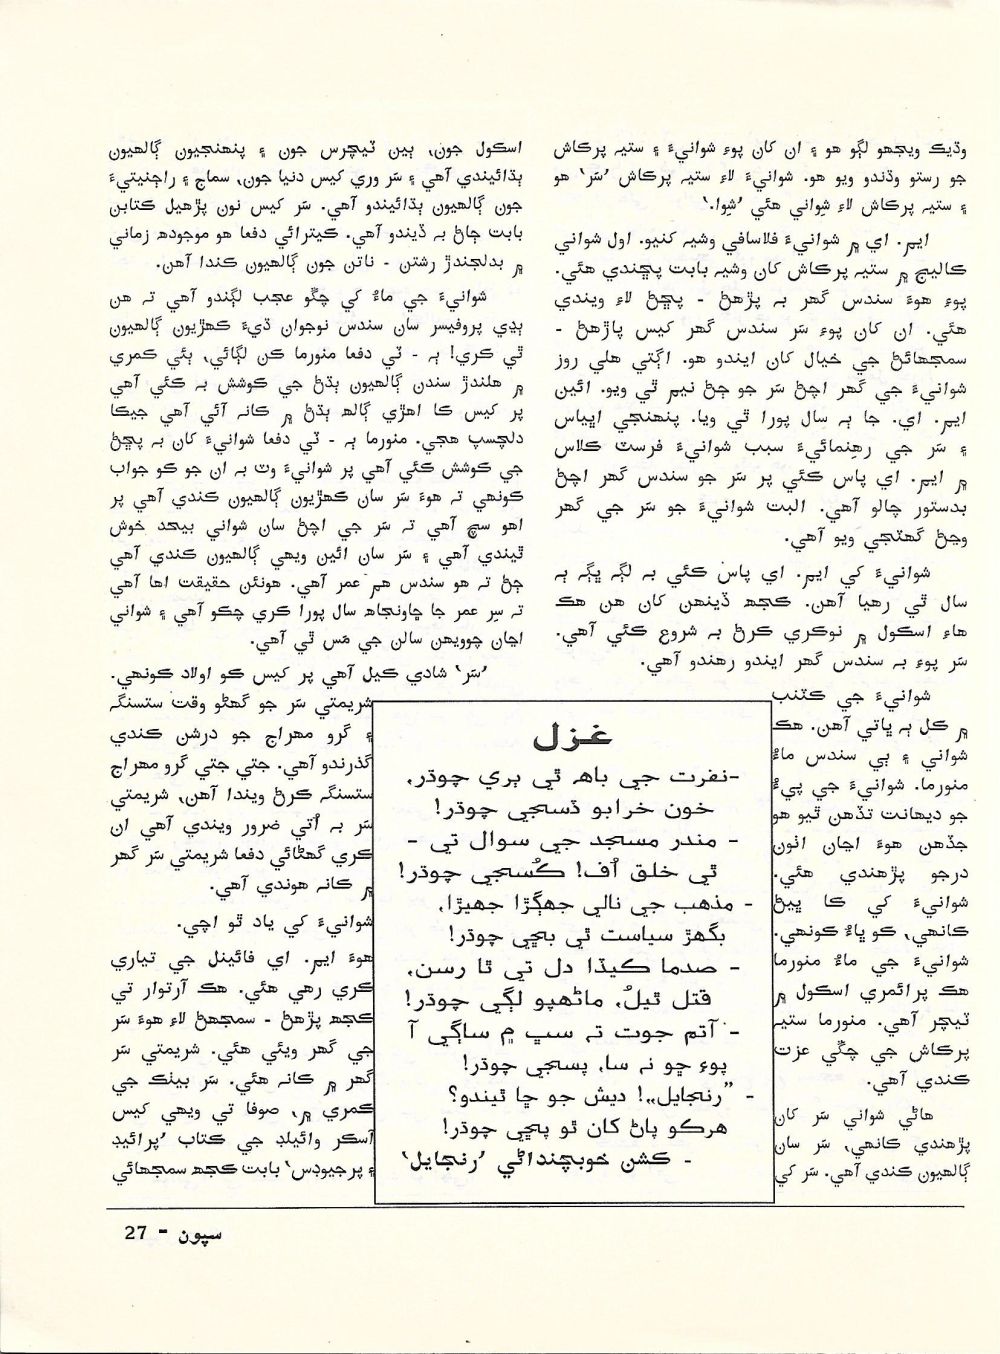 وڌيڪ ويجھو لڳو هو ۽ ان کان پوءِ شوانيءَ ۽ ستيہ پرڪاش
جو رستو وڌندو ويو هو. شوانيءَ لاءِ ستيہ پرڪاش ’سَر‘ هو
۽ ستيہ پرڪاش لاءِ شِواني هئي ’شِوا.‘
ايم. اي ۾ شوانيءَ فلاسافي وشيہ کنيو. اول شواني
ڪاليج ۾ ستيہ پرڪاش کان وشيہ بابت پڇندي هئي.
پوءِ هوءَ سندس گهر بہ پڙهڻ - پڇڻ لاءِ ويندي
هئي. ان کان پوءِ سَر سندس گهر کيس پاڙهڻ -
سمجهائڻ جي خيال کان ايندو هو. اڳتي هلي روز
شوانيءَ جي گهر اچڻ سَر جو ڄڻ نيم ٿي ويو. ائين
ايم. اي. جا ٻہ سال پورا ٿي ويا. پنهنجي اڀياس
۽ سَر جي رهنمائيءَ سبب شوانيءَ فرسٽ ڪلاس
۾ ايم. اي پاس ڪئي پر سَر جو سندس گهر اچڻ
بدستور چالو آهي. البت شوانيءَ جو سَر جي گهر
وڃڻ گهٽجي ويو آهي.
شوانيءَ کي ايم. اي پاس ڪئي بہ لڳہ ڀڳہ ٻہ
سال ٿي رهيا آهن. ڪجھ ڏينهن کان هن هڪ
هاءِ اسڪول ۾ نوڪري ڪرڻ بہ شروع ڪئي آهي.
سَر پوءِ بہ سندس گهر ايندو رهندو آهي.
شوانيءَ جي ڪٽنب
۾ ڪل ٻہ ڀاتي آهن. هڪ
شواني ۽ ٻي سندس ماءُ
منورما. شوانيءَ جي پيءُ
جو ديهانت تڏهن ٿيو هو
جڏهن هوءَ اڃان اٺون
درجو پڙهندي هئي.
شوانيءَ کي ڪا ڀيڻ
ڪانهي، ڪو ڀاءُ ڪونهي.
شوانيءَ جي ماءُ منورما
هڪ پرائمري اسڪول ۾
ٽيچر آهي. منورما ستيہ
پرڪاش جي چڱي عزت
ڪندي آهي.
هاڻي شواني سَر کان
پڙهندي ڪانهي، سَر سان
ڳالهيون ڪندي آهي. سَر کي
اسڪول جون، ٻين ٽيچرس جون ۽ پنهنجيون ڳالهيون
ٻڌائيندي آهي ۽ سَر وري کيس دنيا جون، سماج ۽ راجنيتيءَ
جون ڳالهيون ٻڌائيندو آهي. سَر کيس نون پڙهيل ڪتابن
بابت ڄاڻ بہ ڏيندو آهي. ڪيترائي دفعا هو موجودھ زماني
۾ بدلجندڙ رشتن - ناتن جون ڳالهيون ڪندا آهن.
شوانيءَ جي ماءُ کي چڱو عجب لڳندو آهي تہ هن
ٻڍي پروفيسر سان سندس نوجوان ڌيءَ ڪهڙيون ڳالهيون
ٿي ڪري! ٻہ - ٽي دفعا منورما ڪن لڳائي، ٻئي ڪمري
۾ هلندڙ سندن ڳالهيون ٻڌڻ جي ڪوشش بہ ڪئي آهي
پر کيس ڪا اهڙي ڳالھ ٻڌڻ ۾ ڪانہ آئي آهي جيڪا
دلچسپ هجي. منورما ٻہ - ٽي دفعا شوانيءَ کان بہ پڇڻ
جي ڪوشش ڪئي آهي پر شوانيءَ وٽ بہ ان جو ڪو جواب
ڪونهي تہ هوءَ سَر سان ڪهڙيون ڳالهيون ڪندي آهي پر
اهو سچ آهي تہ سَر جي اچڻ سان شواني بيحد خوش
ٿيندي آهي ۽ سَر سان ائين ويهي ڳالهيون ڪندي آهي
ڄڻ تہ هو سندس هم عمر آهي. هونئن حقيقت اها آهي
تہ سِر عمر جا ڇاونجاھ سال پورا ڪري چڪو آهي ۽ شواني
اڃان چوويهن سالن جي مَس ٿي آهي.
’سَر‘ شادي ڪيل آهي پر کيس ڪو اولاد ڪونهي.
شريمتي سَر جو گهڻو وقت ستسنگہ
۽ گرو مهراج جو درشن ڪندي
گذرندو آهي. جتي جتي گرو مهراج
ستسنگہ ڪرڻ ويندا آهن، شريمتي
سَر بہ اُتي ضرور ويندي آهي ان
ڪري گهڻائي دفعا شريمتي سَر گهر
۾ ڪانہ هوندي آهي.
شوانيءَ کي ياد ٿو اچي.
هوءَ ايم. اي فائينل جي تياري
ڪري رهي هئي. هڪ آرتوار تي
ڪجھ پڙهڻ - سمجهڻ لاءِ هوءَ سَر
جي گهر ويئي هئي. شريمتي سَر
گهر ۾ ڪانہ هئي. سَر بيٺڪ جي
ڪمري ۾، صوفا تي ويهي کيس
آسڪر وائيلڊ جي ڪتاب ’پرائيڊ
۽ پرجيوڊس‘ بابت ڪجھ سمجهائي
غزل
-نفرت جي باھ ٿي ٻري چوڌر،
خون خرابو ڏسجي چوڌر!
- مندر مسجد جي سوال تي -
ٿي خلق اُف! ڪُسجي چوڌر!
- مذهب جي نالي جهڳڙا جهيڙا،
بگهڙ سياست ٿي بچي چوڌر!
- صدما ڪيڏا دل تي ٿا رسن،
قتل ٿيلُ، ماڻهپو لڳي چوڌر!
- آتم جوت تہ سڀ ۾ ساڳي آ
پوءِ ڇو نہ سا، پسجي چوڌر!
- ”رنجايل„! ديش جو ڇا ٿيندو؟
هرڪو پاڻ کان ٿو پڇي چوڌر!
- ڪشن خوبچنداڻي ’رنجايل‘
سپون - 27